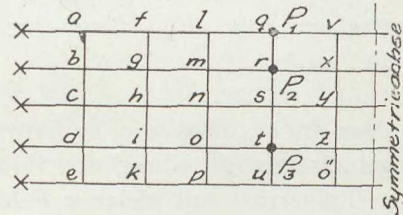 a f l q P₁ v
b g m r x
c h n s P₂ y
d i o t z
e k p u P₃ ö
Symmetrieachse